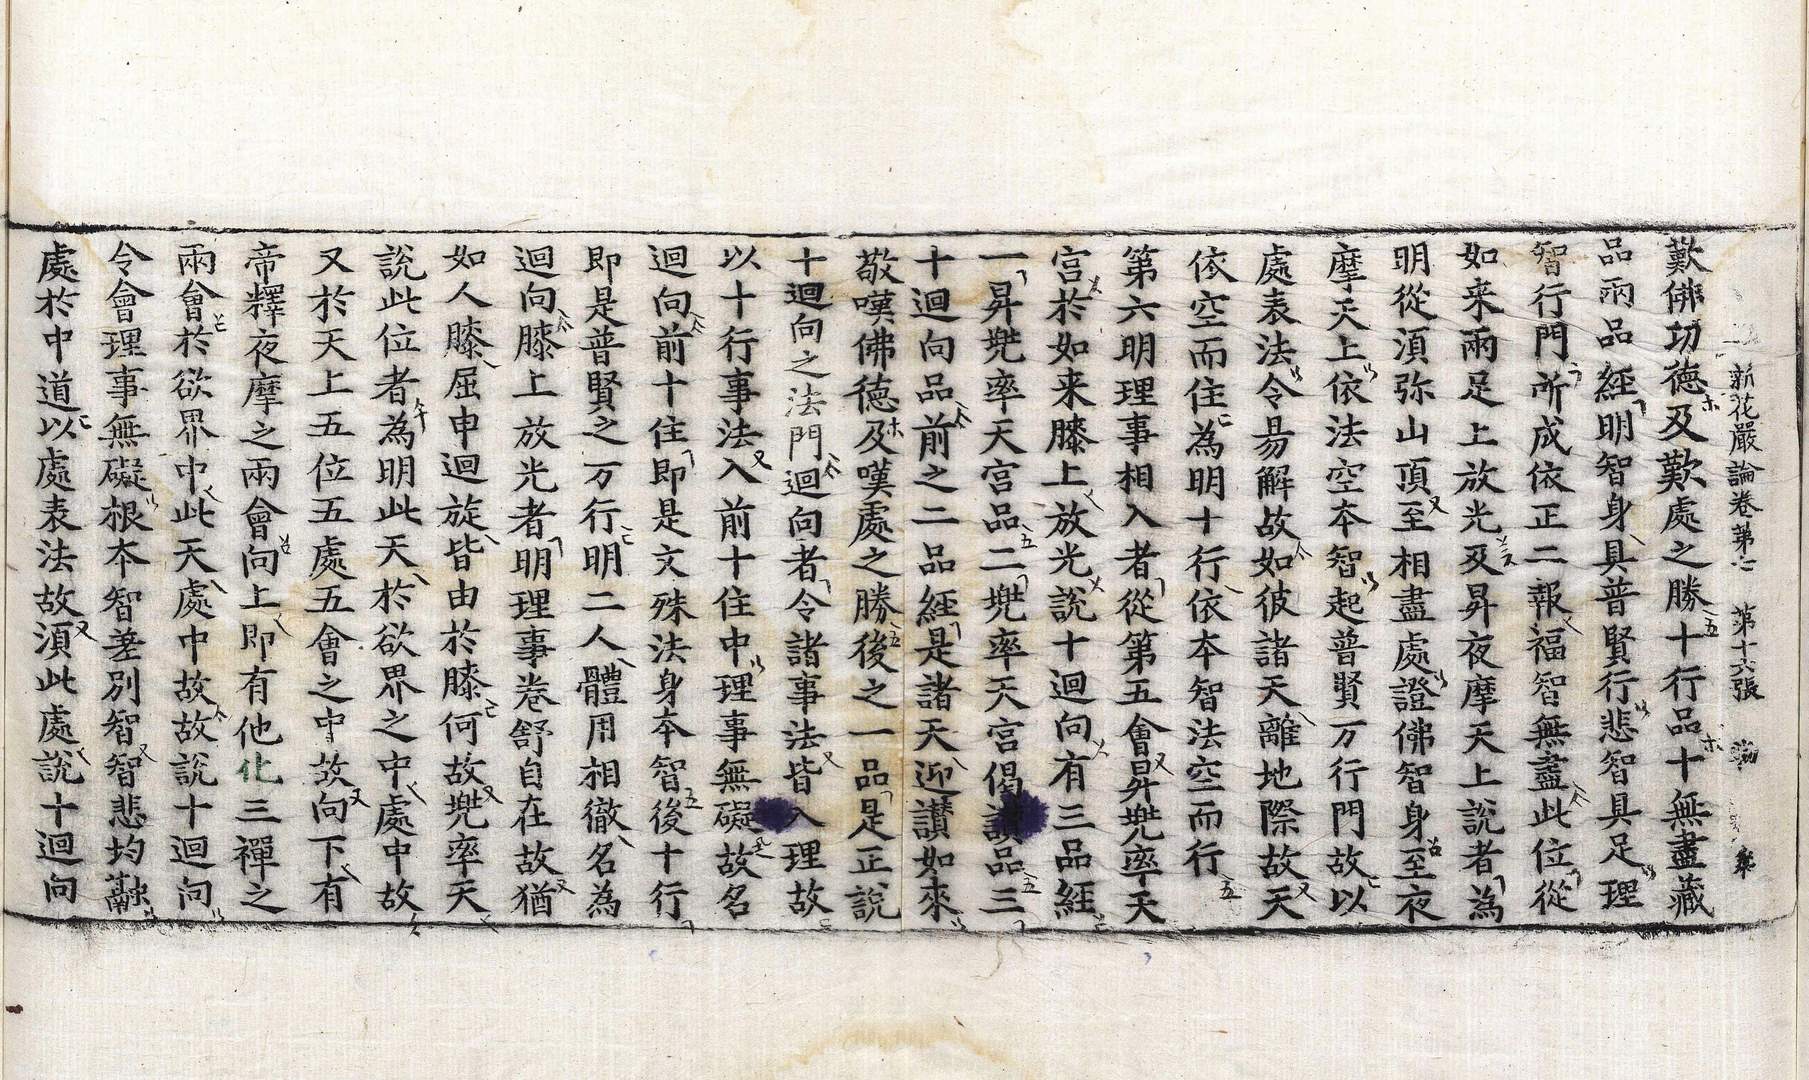 新花嚴論卷第七 第十六張
歎佛功德及歎處之勝十行品十無盡藏
品兩品經明智身具普賢行悲智具足理
智行門所成依正二報福智無盡此位從
如来兩足上放光及昇夜摩天上說者為
明從湏弥山頂至相盡處證佛智身至夜
摩天上依法空本智起普賢万行門故以
處表法令易解故如彼諸天離地際故天
依空而住為明十行依本智法空而行
第六明理事相入者從第五會昇兠率天
宮於如来膝上放光說十迴向有三品經
一昇兠率天宮品二兠率天宮偈讃品三
十迴向品前之二品經是諸天迎讃如來
敬嘆佛德及嘆處之勝後之一品是正說
十迴向之法門迴向者令諸事法皆入理故
以十行事法入前十住中理事無礙故名
迴向前十住即是文殊法身本智後十行
即是普賢之万行明二人體用相徹名為
迴向膝上放光者明理事卷舒自在故猶
如人膝屈申迴旋皆由於膝何故兠率天
說此位者為明此天於欲界之中處中故
又於天上五位五處五會之中故向下有
帝釋夜摩之兩會向上即有他化三禪之
兩會於欲界中此天處中故故說十迴向
令會理事無礙根本智差別智智悲均融
處於中道以處表法故湏此處說十迴向